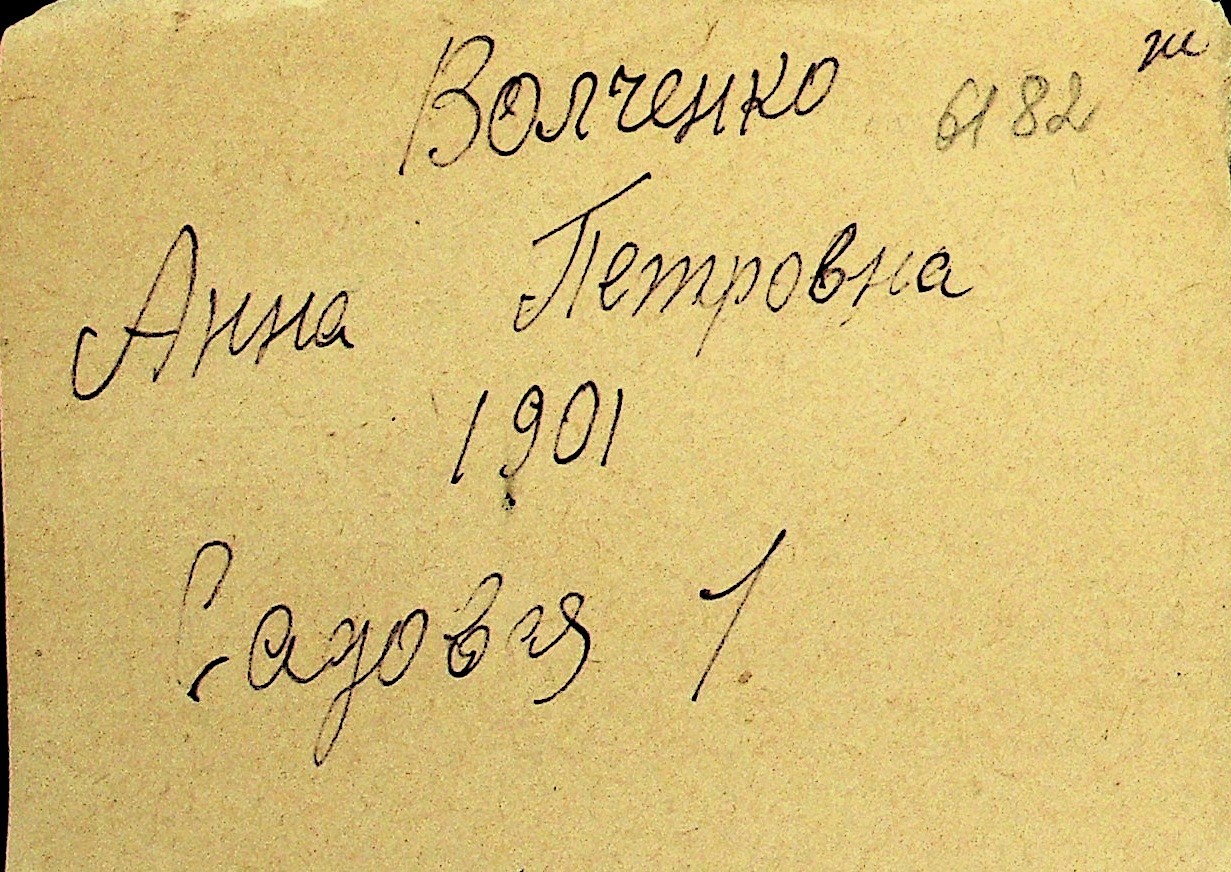 ж
Волченко 6182
Анна Петровна
1901
Садовя 1